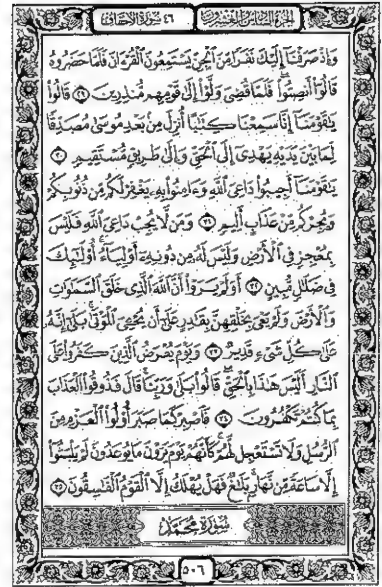 الجزء السادس والعشرون ٤٦ سورة الأحقاف
وَإِذْ صَرَفْنَآ إِلَيْكَ نَفَرًا مِّنَ ٱلْجِنِّ يَسْتَمِعُونَ ٱلْقُرْءَانَ فَلَمَّا حَضَرُوهُ
قَالُوٓا۟ أَنصِتُوا۟ ۖ فَلَمَّا قُضِىَ وَلَّوْا۟ إِلَىٰ قَوْمِهِم مُّنذِرِينَ ٢٩ قَالُوا۟
يَـٰقَوْمَنَآ إِنَّا سَمِعْنَا كِتَـٰبًا أُنزِلَ مِنۢ بَعْدِ مُوسَىٰ مُصَدِّقًا
لِّمَا بَيْنَ يَدَيْهِ يَهْدِىٓ إِلَى ٱلْحَقِّ وَإِلَىٰ طَرِيقٍ مُّسْتَقِيمٍ ٣٠
يَـٰقَوْمَنَآ أَجِيبُوا۟ دَاعِىَ ٱللَّهِ وَءَامِنُوا۟ بِهِۦ يَغْفِرْ لَكُم مِّن ذُنُوبِكُمْ
وَيُجِرْكُم مِّنْ عَذَابٍ أَلِيمٍ ٣١ وَمَن لَّا يُجِبْ دَاعِىَ ٱللَّهِ فَلَيْسَ
بِمُعْجِزٍ فِى ٱلْأَرْضِ وَلَيْسَ لَهُۥ مِن دُونِهِۦٓ أَوْلِيَآءُ ۚ أُو۟لَـٰٓئِكَ
فِى ضَلَـٰلٍ مُّبِينٍ ٣٢ أَوَلَمْ يَرَوْا۟ أَنَّ ٱللَّهَ ٱلَّذِى خَلَقَ ٱلسَّمَـٰوَٰتِ
وَٱلْأَرْضَ وَلَمْ يَعْىَ بِخَلْقِهِنَّ بِقَـٰدِرٍ عَلَىٰٓ أَن يُحْـِۧىَ ٱلْمَوْتَىٰ ۚ بَلَىٰٓ إِنَّهُۥ
عَلَىٰ كُلِّ شَىْءٍ قَدِيرٌ ٣٣ وَيَوْمَ يُعْرَضُ ٱلَّذِينَ كَفَرُوا۟ عَلَى
ٱلنَّارِ أَلَيْسَ هَـٰذَا بِٱلْحَقِّ ۖ قَالُوا۟ بَلَىٰ وَرَبِّنَا ۚ قَالَ فَذُوقُوا۟ ٱلْعَذَابَ
بِمَا كُنتُمْ تَكْفُرُونَ ٣٤ فَٱصْبِرْ كَمَا صَبَرَ أُو۟لُوا۟ ٱلْعَزْمِ مِنَ
ٱلرُّسُلِ وَلَا تَسْتَعْجِل لَّهُمْ ۚ كَأَنَّهُمْ يَوْمَ يَرَوْنَ مَا يُوعَدُونَ لَمْ يَلْبَثُوٓا۟
إِلَّا سَاعَةً مِّن نَّهَارٍۭ ۚ بَلَـٰغٌ ۚ فَهَلْ يُهْلَكُ إِلَّا ٱلْقَوْمُ ٱلْفَـٰسِقُونَ ٣٥
سُورَةُ مُحَمَّدٍ
٥٠٦